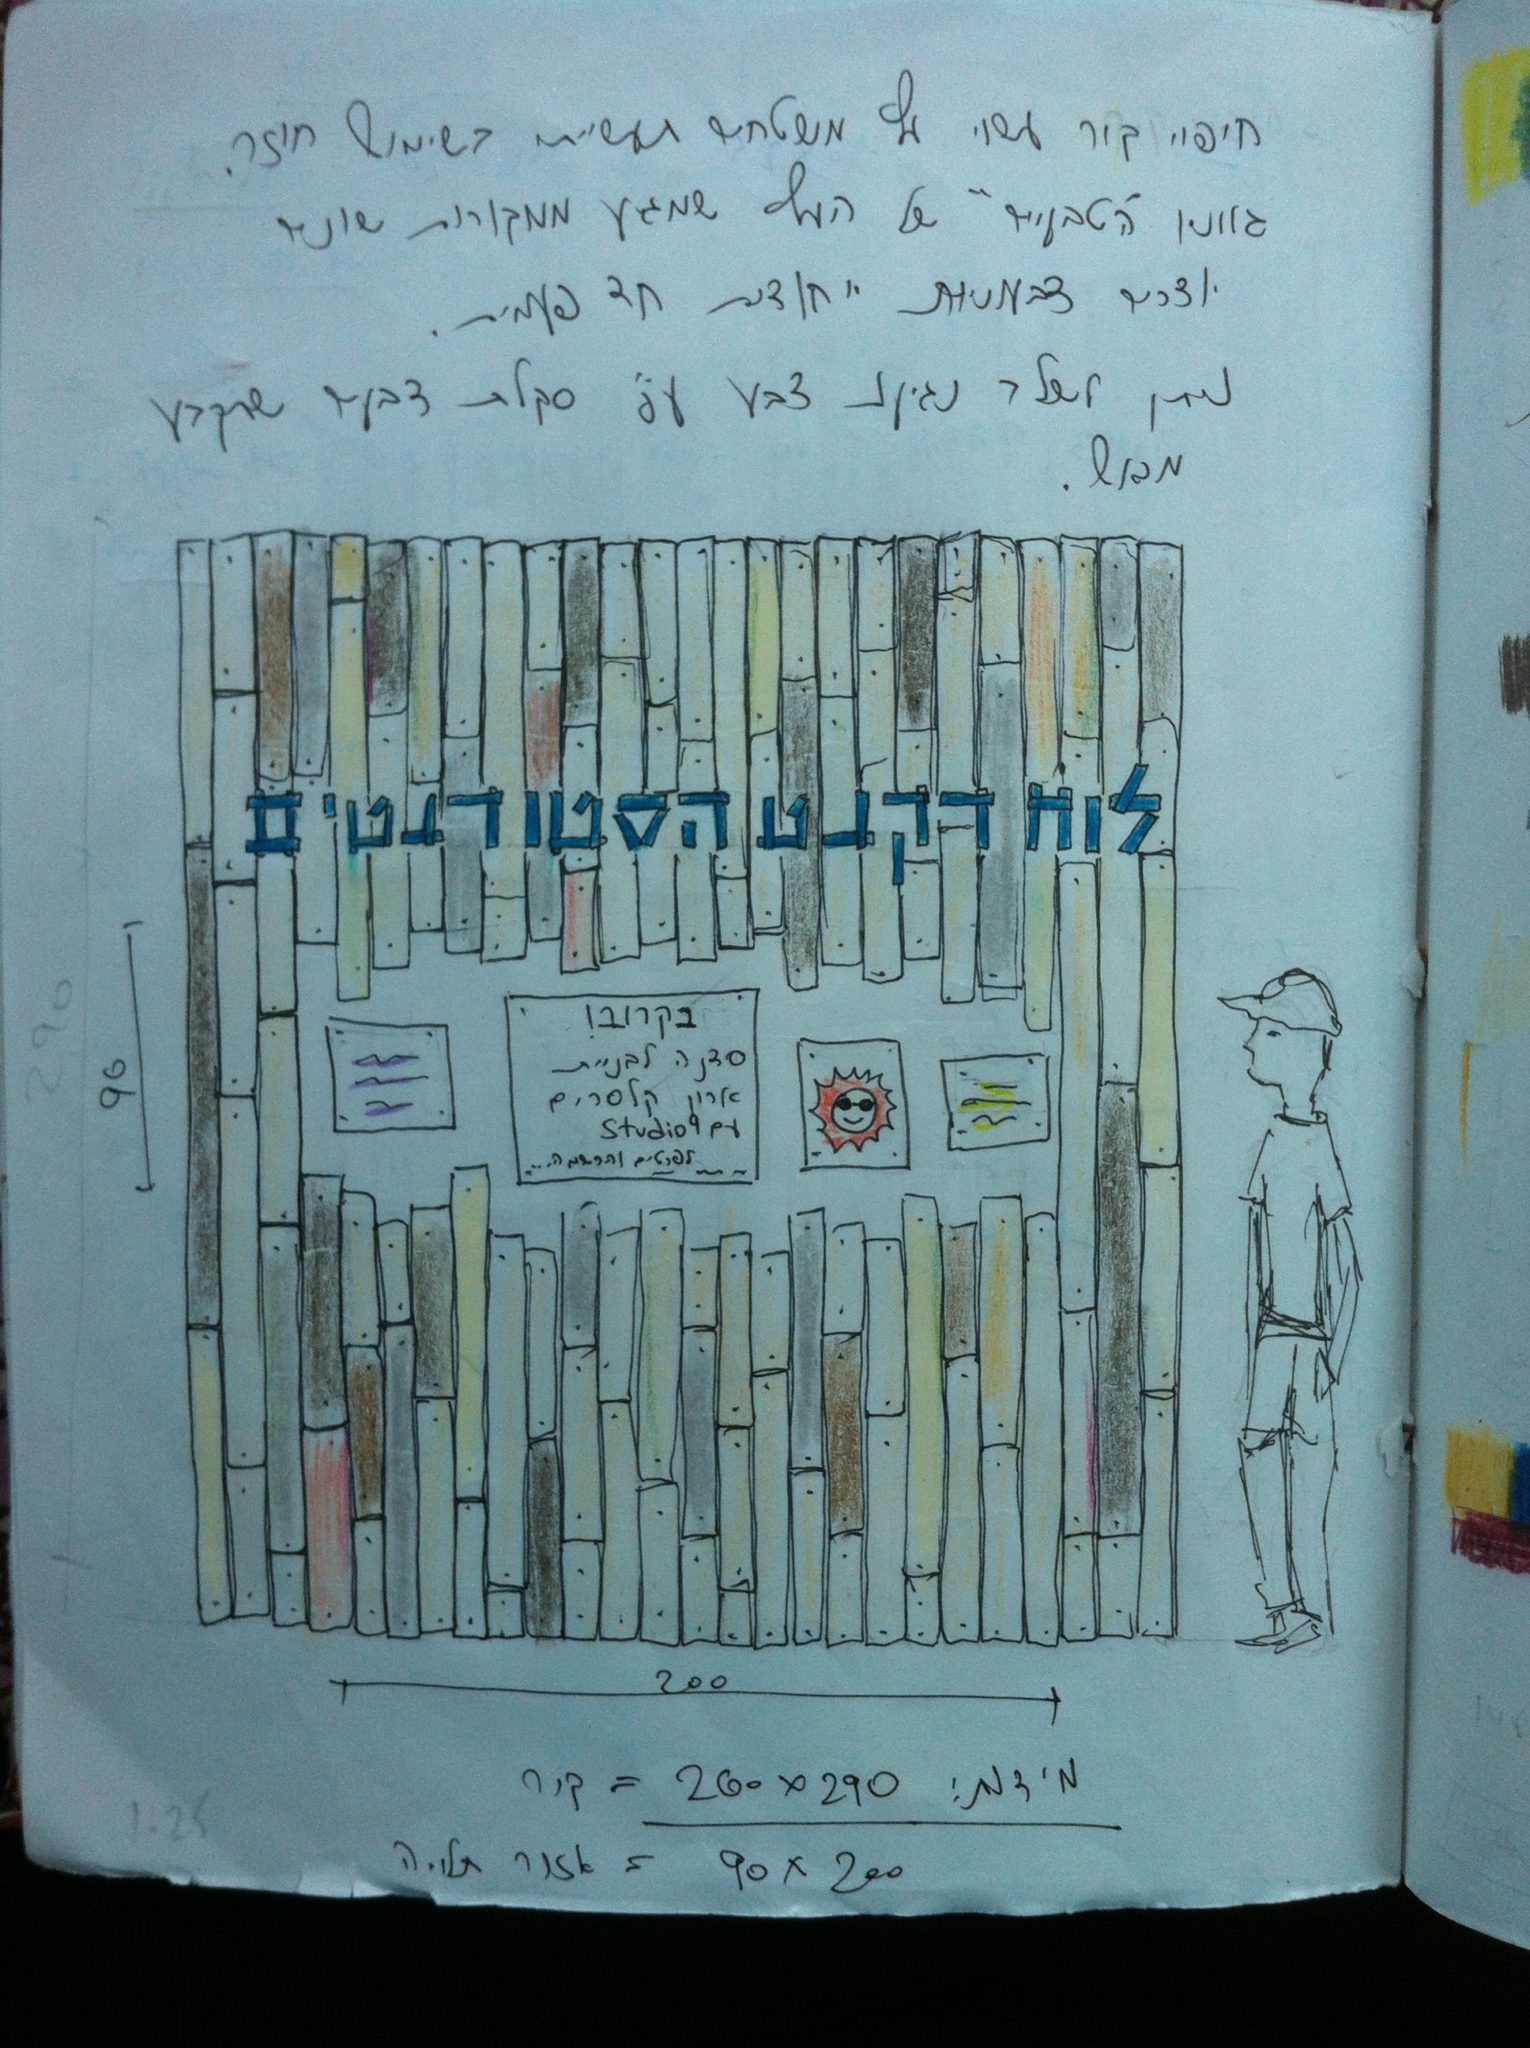 חיפוי קיר עשוי עץ משטחים תעשייתיים בשימוש חוזר.
גווניו "הטבעיים" של העץ שמגיע ממקורות שונים
יוצרים צבעוניות ייחודית חד פעמית.
ניתן לשלב נגיעות צבע ע"פ סקלת צבעים שתקבע
מראש.
לוח דקנט הסטודנטים
בקרוב!
סדנה לבניית
ארון קלסרים
עם Studio9
לפרטים והרשמה...
290
90
200
מידות: 260x290 = קיר
90x200 = אזור תלייה
1:25